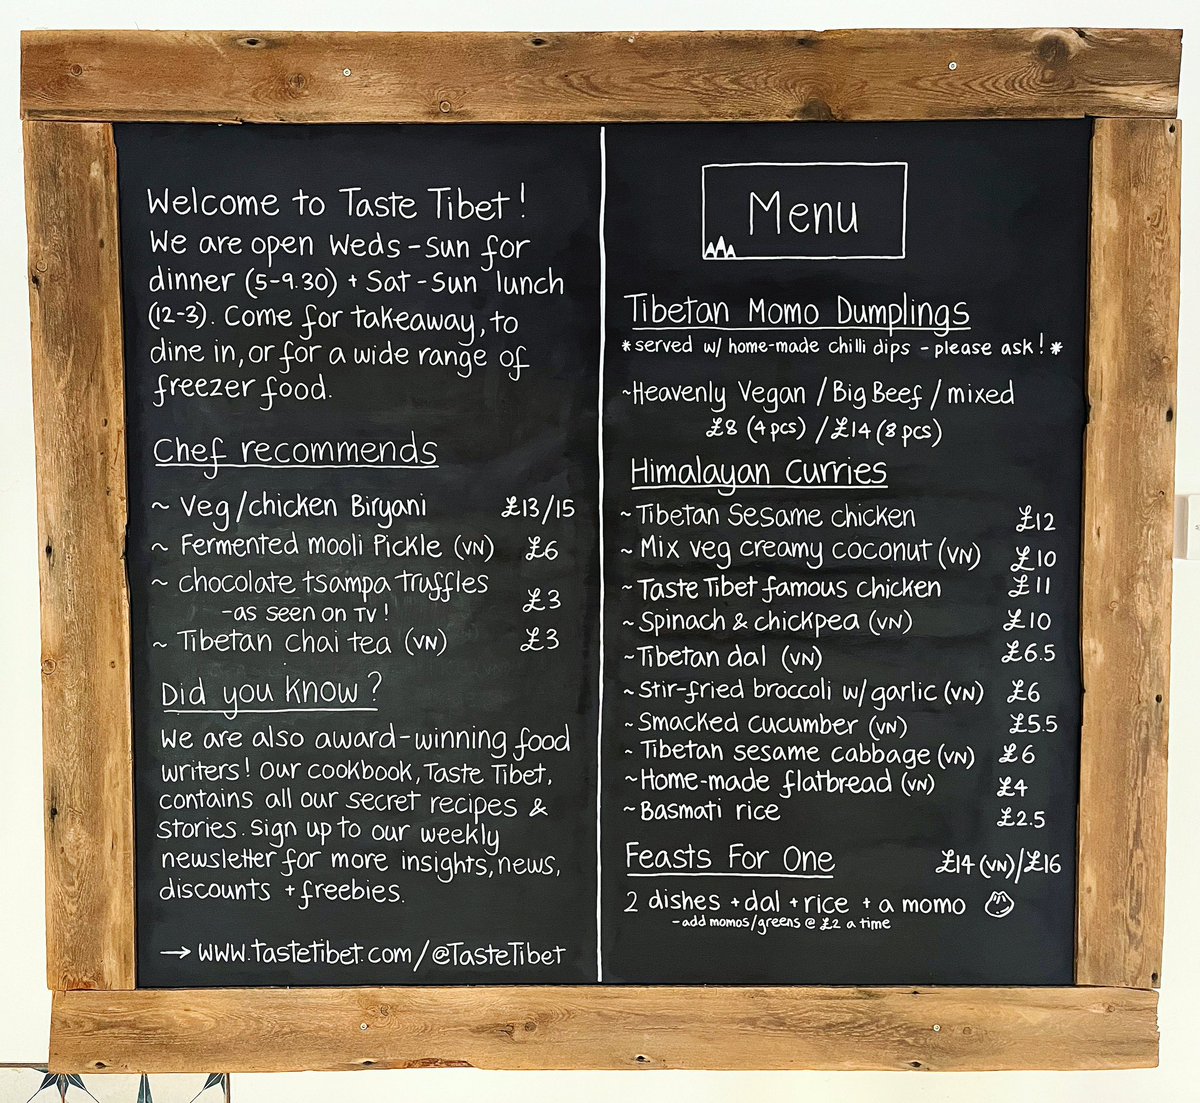 Welcome to Taste Tibet!
We are open Weds-Sun for
dinner (5-9.30) + Sat-Sun lunch
(12-3). Come for takeaway, to
dine in, or for a wide range of
freezer food.
Chef recommends
~ Veg/chicken Biryani £13/15
~ Fermented mooli Pickle (VN) £6
~ chocolate tsampa truffles £3
-as seen on TV!
~ Tibetan chai tea (VN) £3
Did you know?
We are also award-winning food
writers! Our cookbook, Taste Tibet,
contains all our secret recipes &
stories. Sign up to our weekly
newsletter for more insights, news,
discounts + freebies.
→ www.tastetibet.com/@TasteTibet
Menu
Tibetan Momo Dumplings
*served w/ home-made chilli dips - please ask!*
~Heavenly Vegan / Big Beef / mixed
£8 (4 pcs) / £14 (8 pcs)
Himalayan Curries
~Tibetan Sesame chicken £12
~Mix veg creamy coconut (VN) £10
~Taste Tibet famous chicken £11
~Spinach & chickpea (VN) £10
~Tibetan dal (VN) £6.5
~Stir-fried broccoli w/ garlic (VN) £6
~Smacked cucumber (VN) £5.5
~Tibetan sesame cabbage (VN) £6
~Home-made flatbread (VN) £4
~Basmati rice £2.5
Feasts For One £14 (VN)/£16
2 dishes + dal + rice + a momo
-add momos/greens @ £2 a time